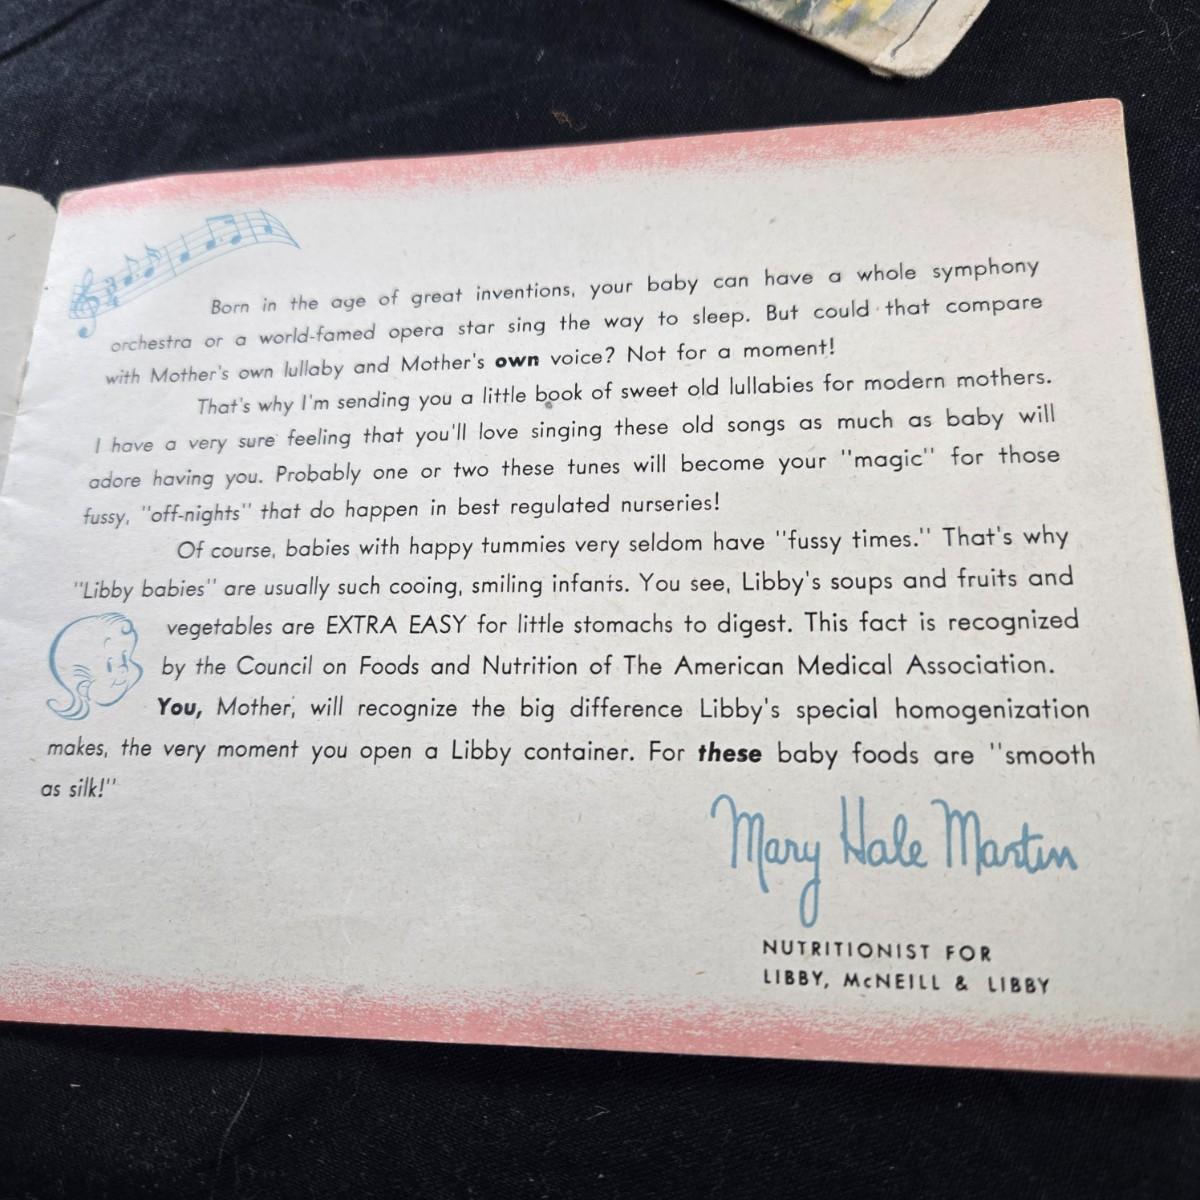 Born in the age of great inventions, your baby can have a whole symphony
orchestra or a world-famed opera star sing the way to sleep. But could that compare
with Mother's own lullaby and Mother's own voice? Not for a moment!
That's why I'm sending you a little book of sweet old lullabies for modern mothers.
I have a very sure feeling that you'll love singing these old songs as much as baby will
adore having you. Probably one or two these tunes will become your "magic" for those
fussy, "off-nights" that do happen in best regulated nurseries!
Of course, babies with happy tummies very seldom have "fussy times." That's why
"Libby babies" are usually such cooing, smiling infants. You see, Libby's soups and fruits and
vegetables are EXTRA EASY for little stomachs to digest. This fact is recognized
by the Council on Foods and Nutrition of The American Medical Association.
You, Mother, will recognize the big difference Libby's special homogenization
makes, the very moment you open a Libby container. For these baby foods are "smooth
as silk!"
Mary Hale Martin
NUTRITIONIST FOR
LIBBY, McNEILL & LIBBY